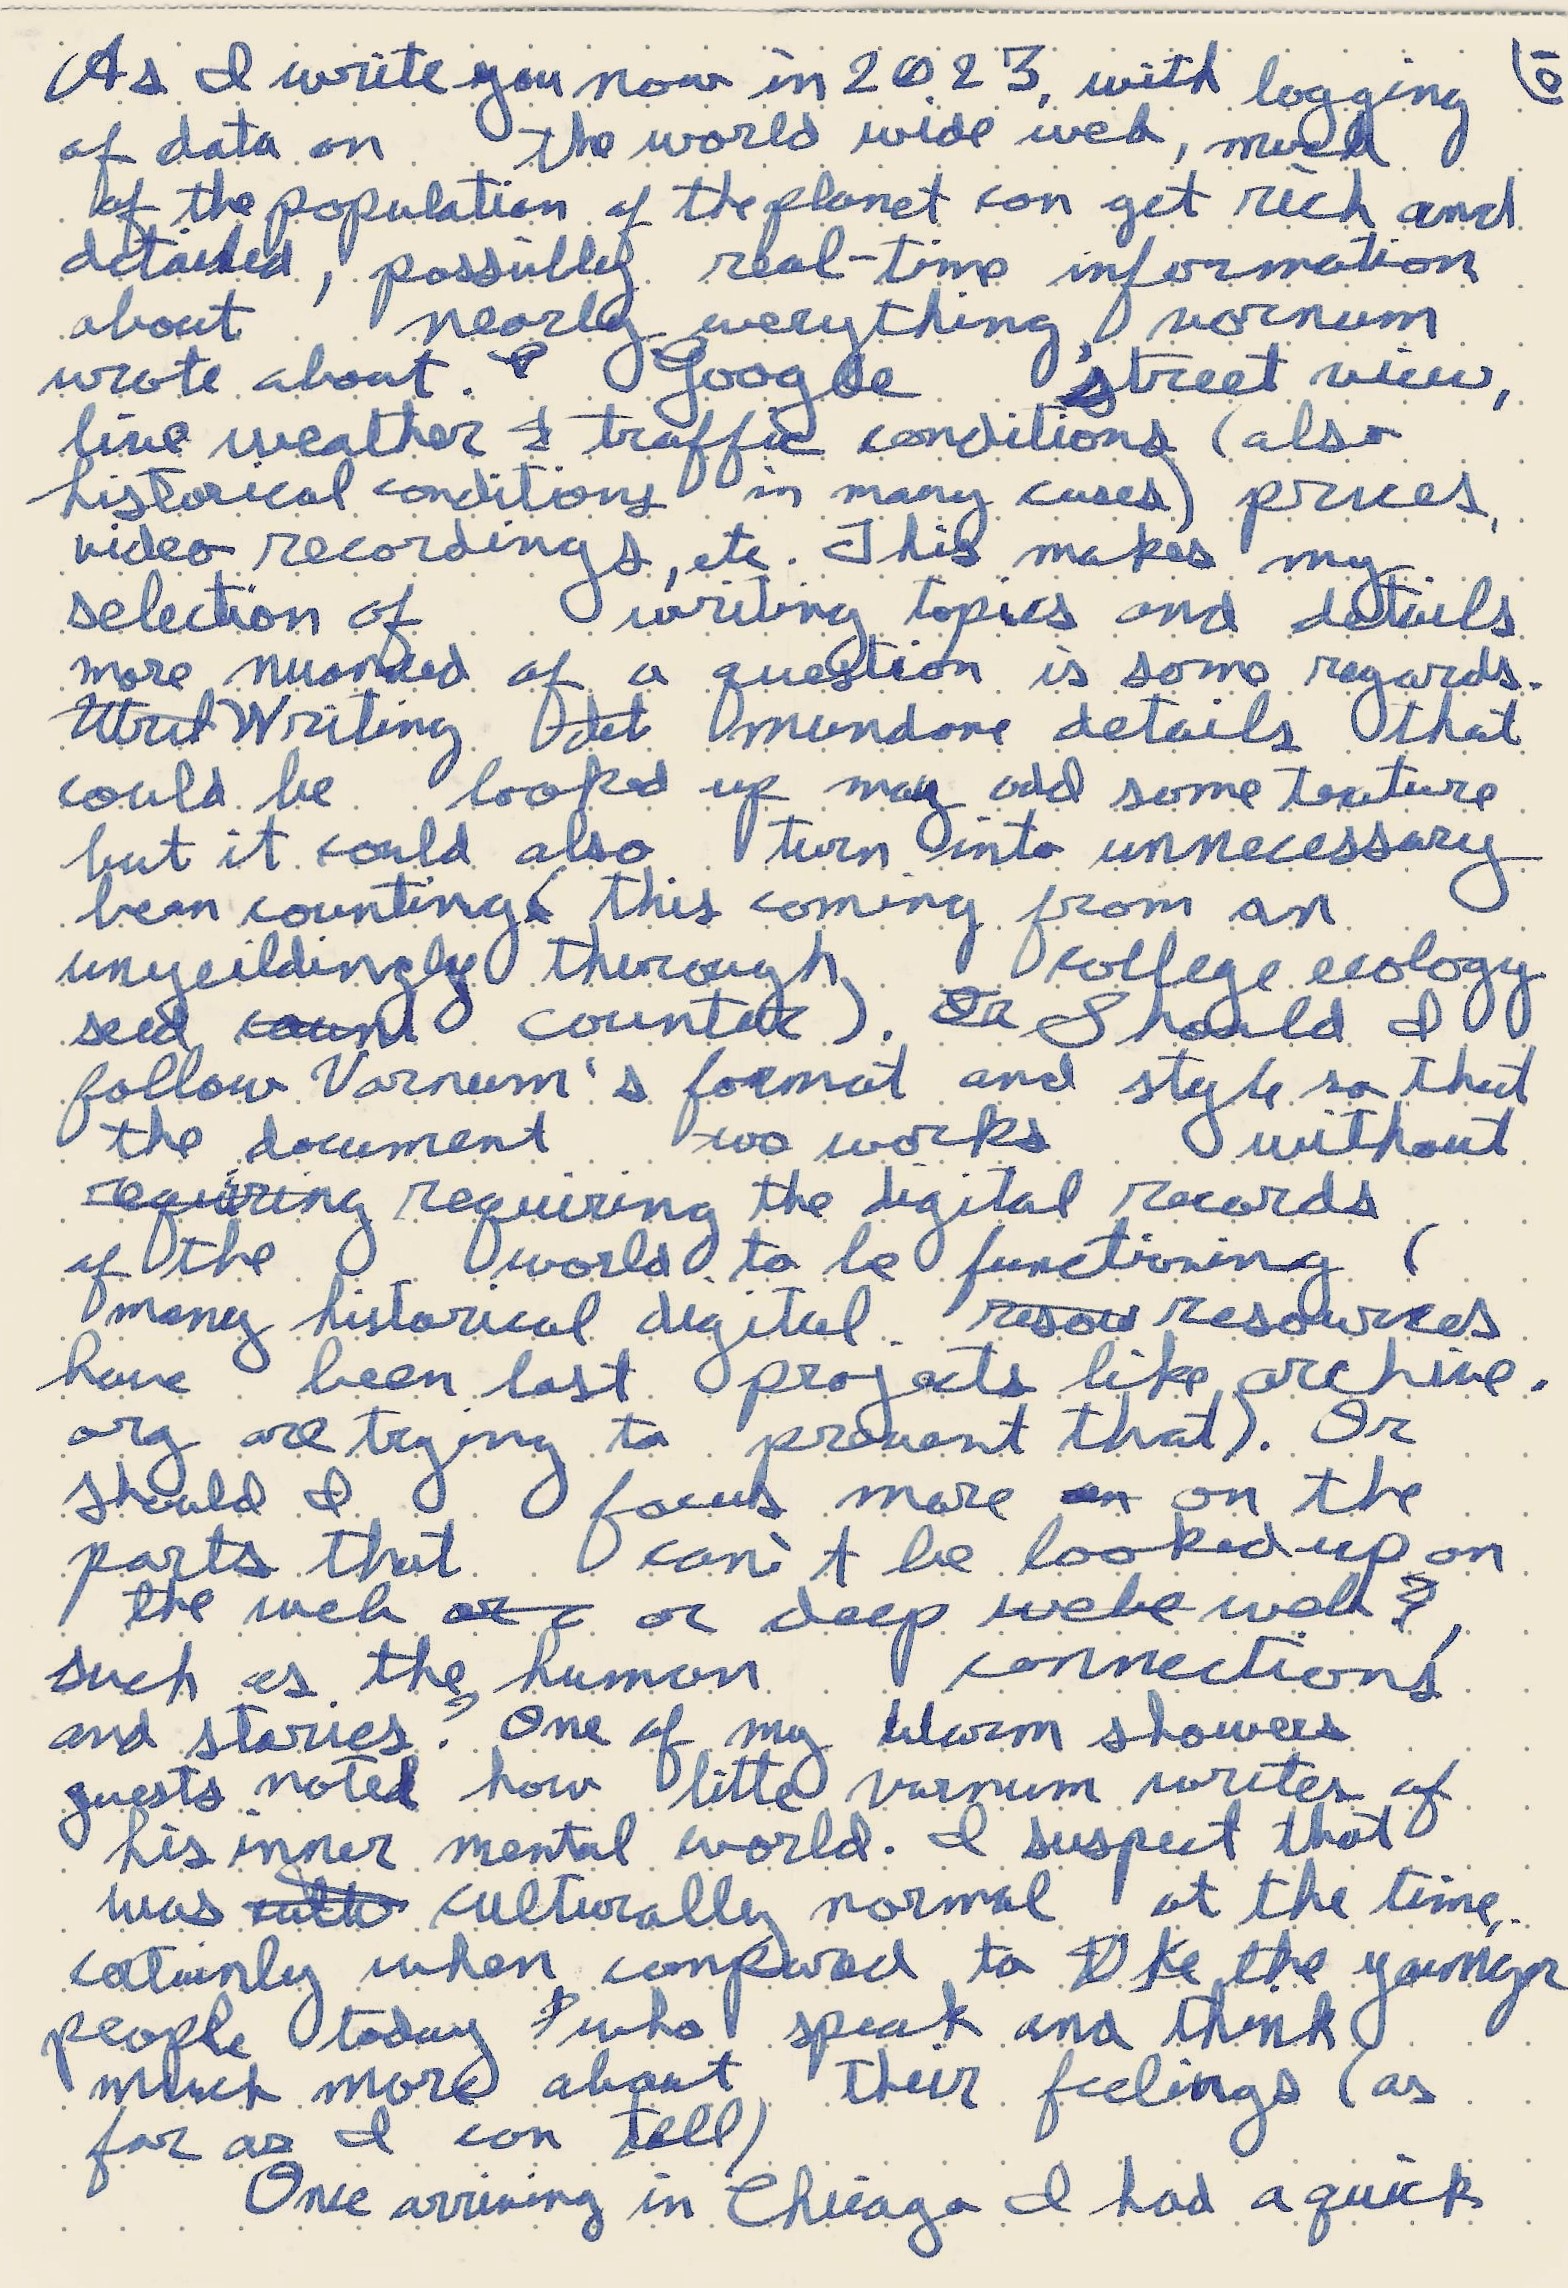 As I write you now in 2023, with logging 10
of data on the world wide web, much
of the population of the planet can get rich and
detailed, possibly real-time information
about nearly everything varnum
wrote about. Google street view,
live weather & traffic conditions (also
historical conditions in many cases) prices,
video recordings, etc. This makes my
selection of writing topics and details
more nuanced of a question is some regards.
Writing mundane details that
could be looked up may add some texture
but it could also turn into unnecessary
bean counting (this coming from an
unyeildingly thorough college ecology
seed counter). Should I
follow Varnum's format and style so that
the document wo works without
requiring requiring the digital records
of the world to be functioning (
many historical digital resou resources
have been lost projects like archive.
org are trying to prevent that). Or
should I focus more on on the
parts that can't be looked up on
the web or or deep webe web?,
such as the human connections
and stories? One of my Warm showers
guests noted how litte varnum writes of
his inner mental world. I suspect that
was culturally normal at the time,
catainly when compared to the younger
people today who speak and think
much more about their feelings (as
far as I can tell)
Once arriving in Chicago I had a quick